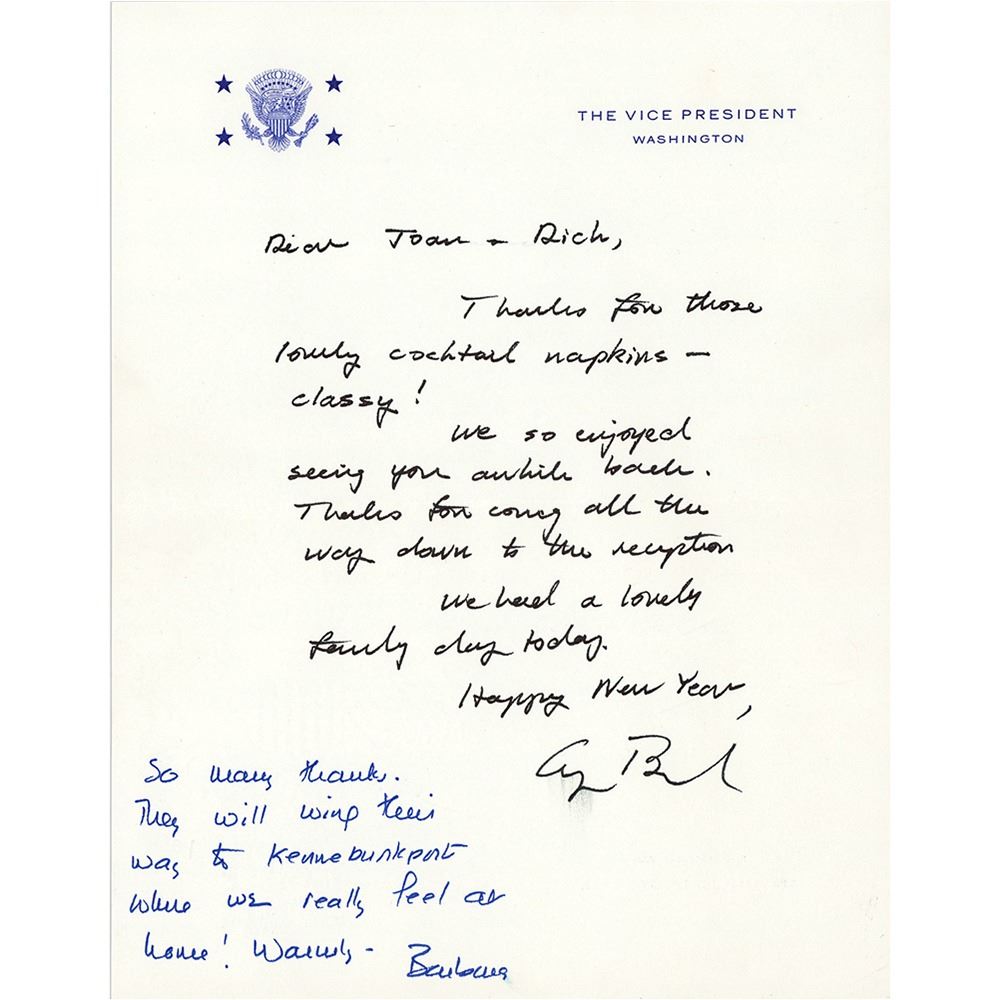 THE VICE PRESIDENT
WASHINGTON
Dear Joan + Dick,
Thanks for those
lovely cocktail napkins —
classy!
We so enjoyed
seeing you awhile back.
Thanks for coming all the
way down to the reception
We had a lovely
family day today.
Happy New Year,
George Bush
So many thanks.
They will wing their
way to Kennebunkport
where we really feel at
home! Warmly -
Barbara